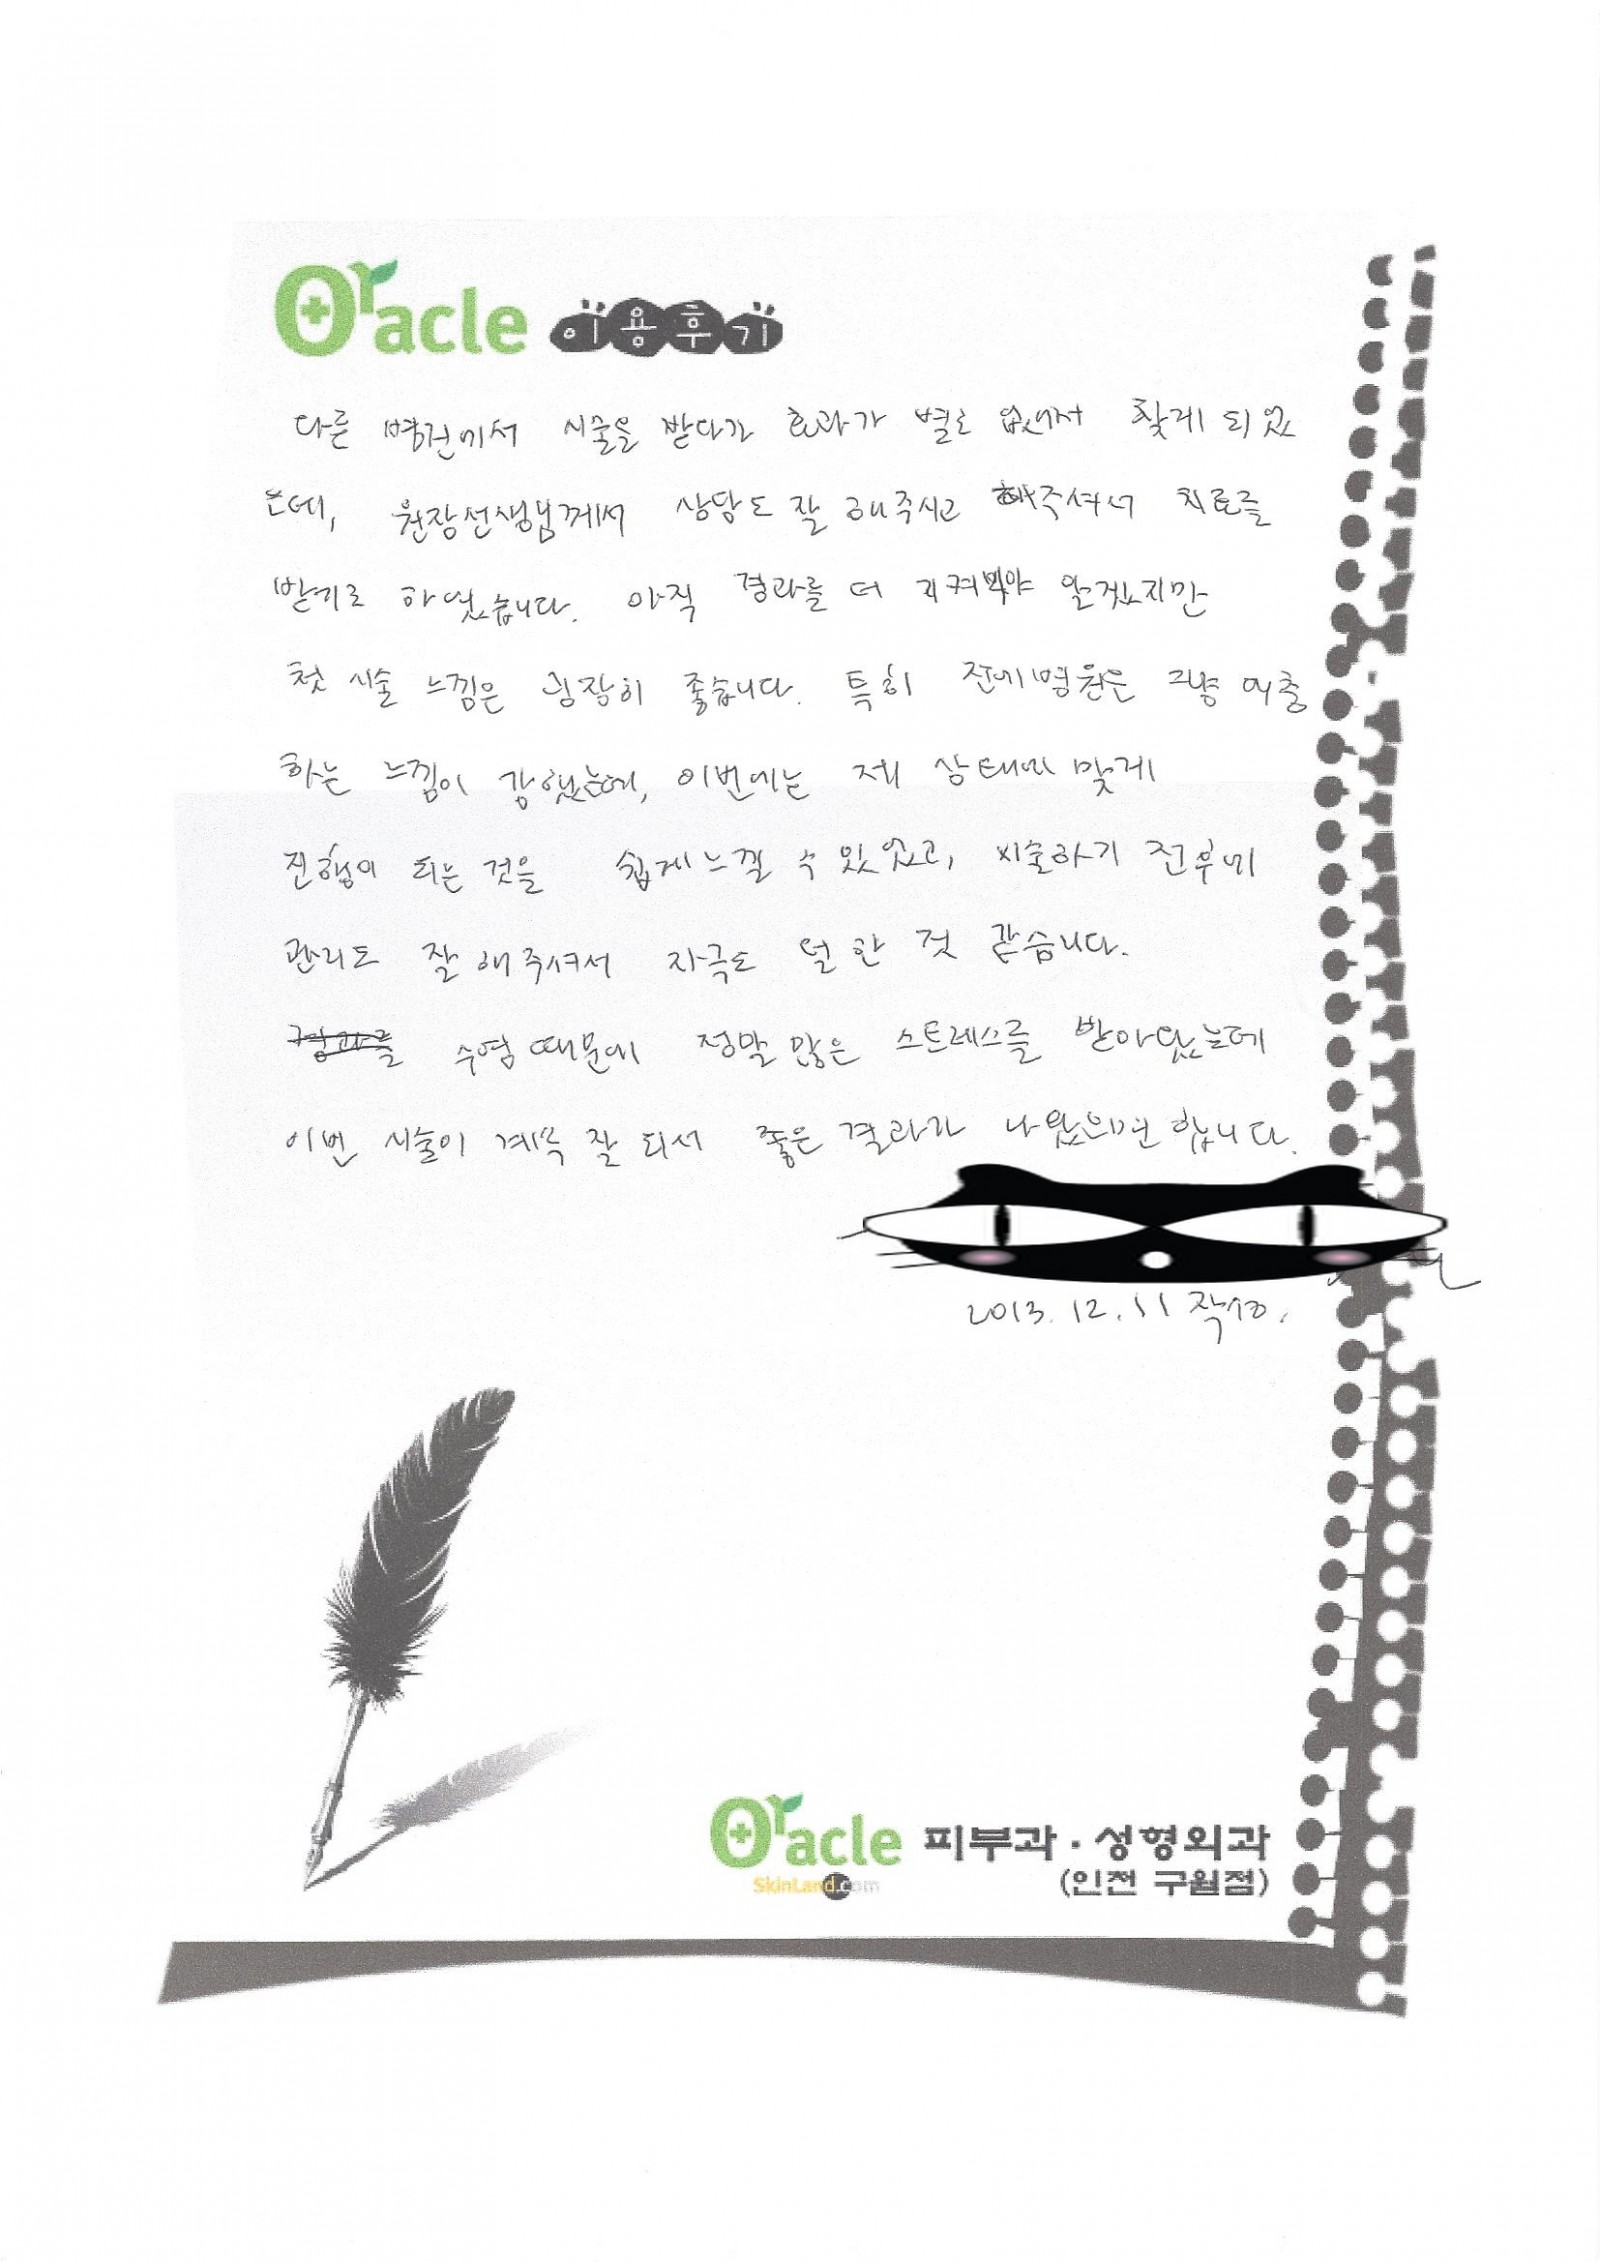 Oracle 이용후기
다른 병원에서 시술을 받다가 효과가 별로 없어서 찾게 되었
는데, 원장선생님께서 상담도 잘 해주시고 해주셔서 치료를
받기로 하였습니다. 아직 결과를 더 지켜봐야 알겠지만
첫 시술 느낌은 굉장히 좋습니다. 특히 전에병원은 그냥
하는 느낌이 강했는데, 이번에는 제 상태에 맞게
진행이 되는 것을 쉽게 느낄 수 있었고, 시술하기 전후에
관리도 잘 해주셔서 자극도 덜 한 것 같습니다.
수염 때문에 정말 많은 스트레스를 받아왔는데
이번 시술이 계속 잘 되서 좋은 결과가 나왔으면 합니다.
2013. 12. 11 작성.
Oracle 피부과 · 성형외과
SkinLand.com (인천 구월점)